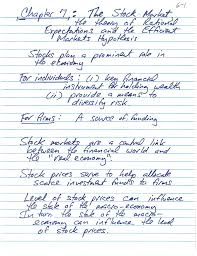 6-1
Chapter 7: The Stock Market,
the theory of Rational
Expectations and the Efficient
Markets Hypothesis
Stocks play a prominent role in
the economy
For individuals: (i) key financial
instrument for holding wealth
(ii) provide a means to
diversity risk
For firms: A source of funding
Stock markets are a central link
between the financial world and
the "real economy"
Stock prices serve to help allocate
scarce investment funds to firms
Level of stock prices can influence
the state of the macro-economy
In turn the state of the macro-
economy can influence the level
of stock prices.